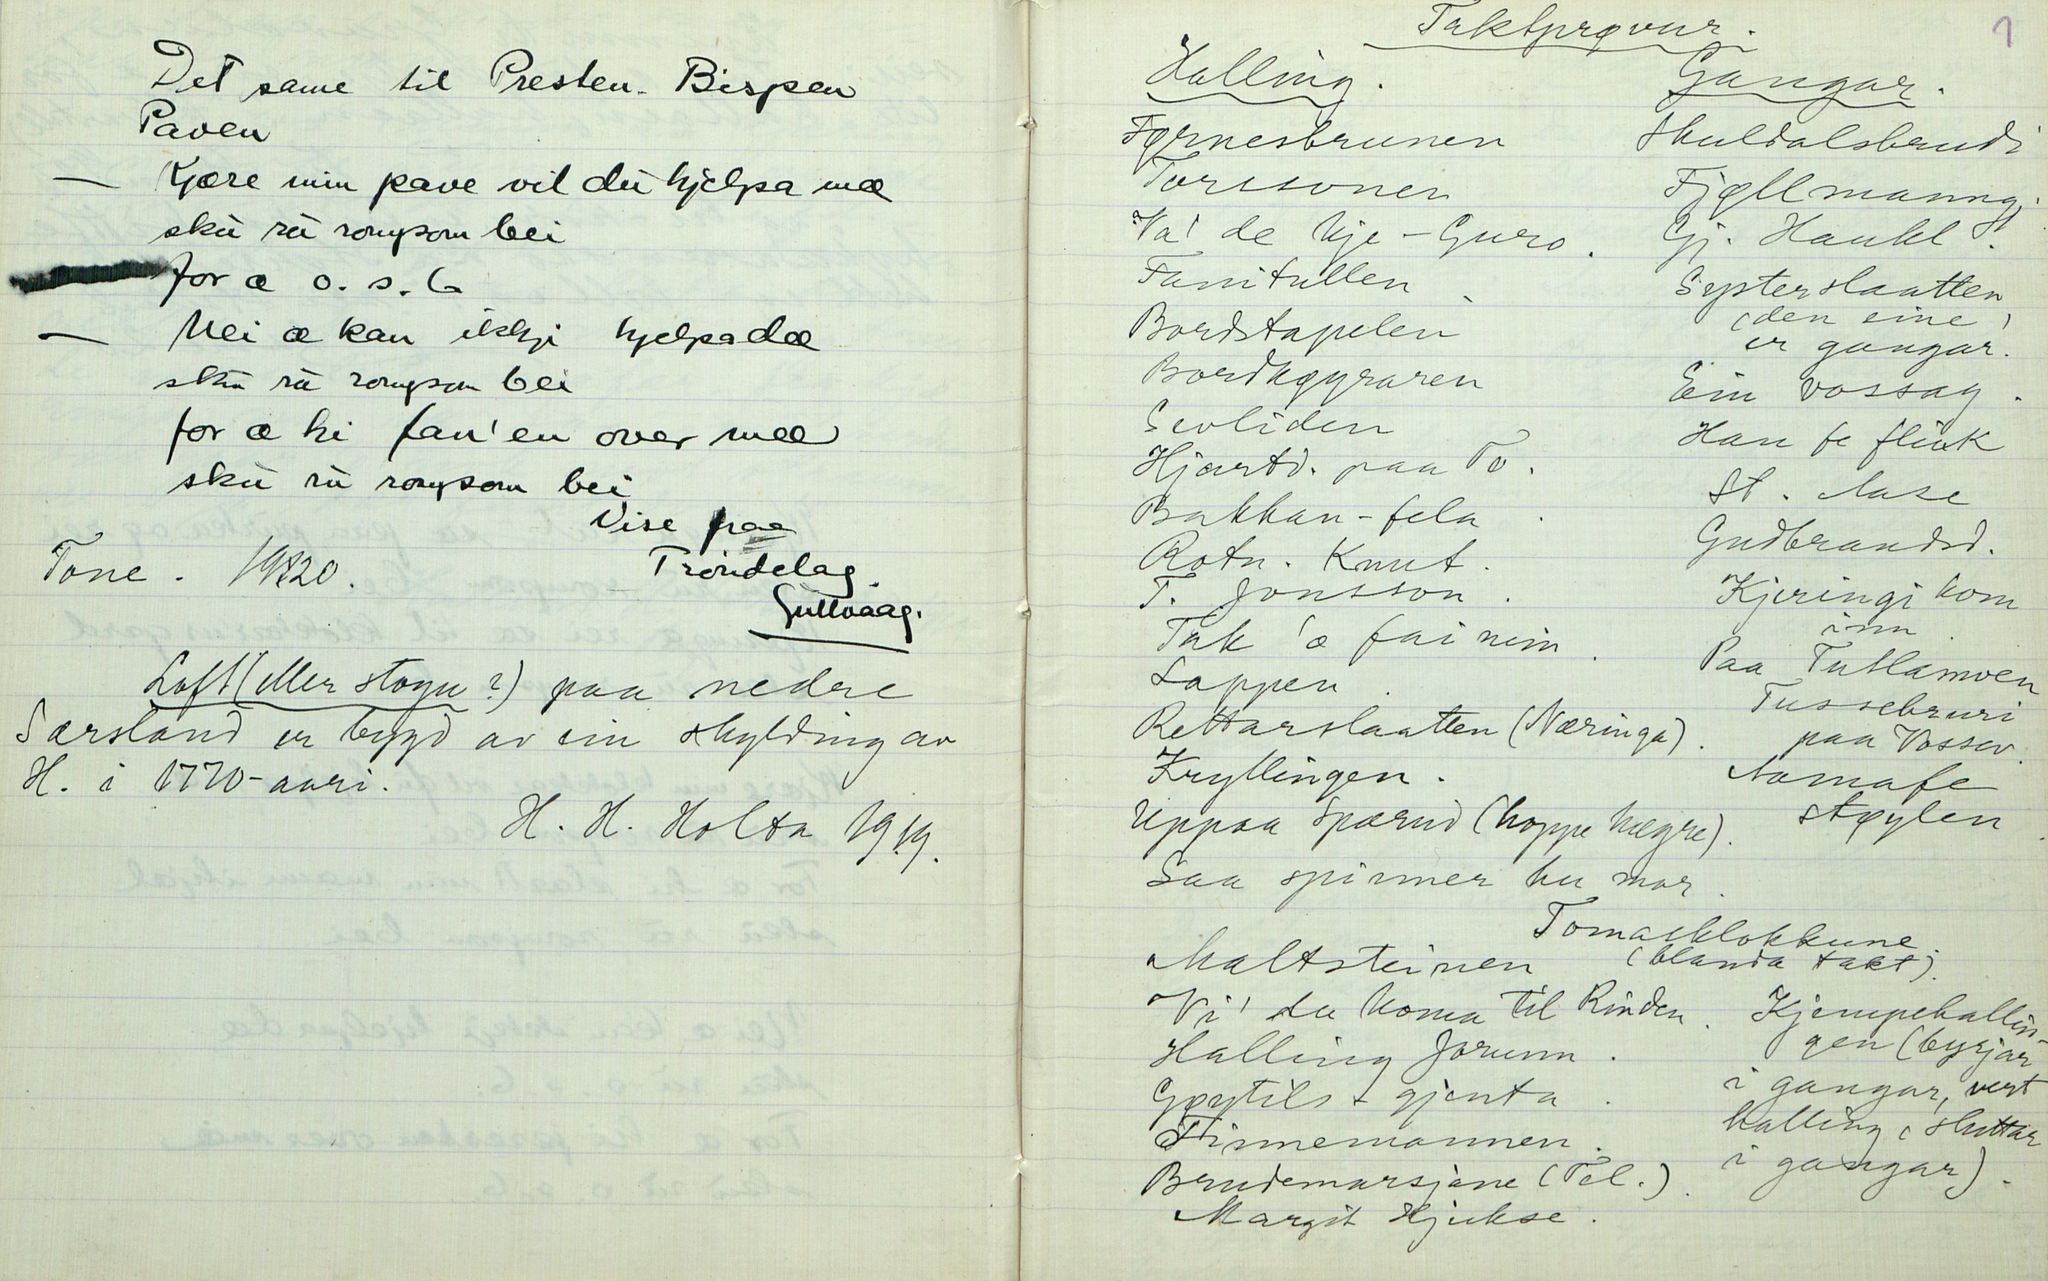 Det same til Presten. Bispen
Paven
— Kjære min pave vil du hjelpa mæ
skù rù rompom bei
for æ o. s. b
— Nei æ kan ikkji hjelpa dæ
skù rù rompom bei
for æ hi fan'en over mæ
skù rù rompom bei
Vise paa
Trøndelag.
Gullvaag.
Tone. 1920.
Loft (eller stogu?) paa nedre
Særsland er bygd av ein skylding av
H. i 1770-aari.
H. H. Holta 1919.
1
Taktprøvur.
Halling.
Førnesbrunen
Va' de kje - Guro.
Fanitullen
Bordstapelen
Bordkøyraren
Sevliden
Hjartd. paa To.
Bakkan-fela
Rotn. Knut.
T. Jonsson.
Tak 'æ fai nein.
Lappen.
Rettarslaatten (Næringa).
Kryllingen.
Uppaa Spærud (hoppe hægre).
Saa spinner hu mor.
Maltsteinen
Vi' du koma til Rinden.
Halling Jorunn.
Gøytils + gjenta.
Finnemannen.
Brudemarsjane (Tel.).
Margit Hjukse.
Gangar.
Skuldalsbrudi
Fjellmanng.
Gj. Haukl.
Systerslaatten
(den eine
er gangar.
Ein vossag.
Han fe flink
St. Aase
Gudbrandsd.
Kjeringi kom
inn.
Paa Tuslamoen
Tussebruri
paa Vossev.
Aamafe
støylen
Tomasklokkune
(blanda takt).
Kjempehallin-
gen (byrjar
i gangar, vert
halling, sluttar
i gangar).